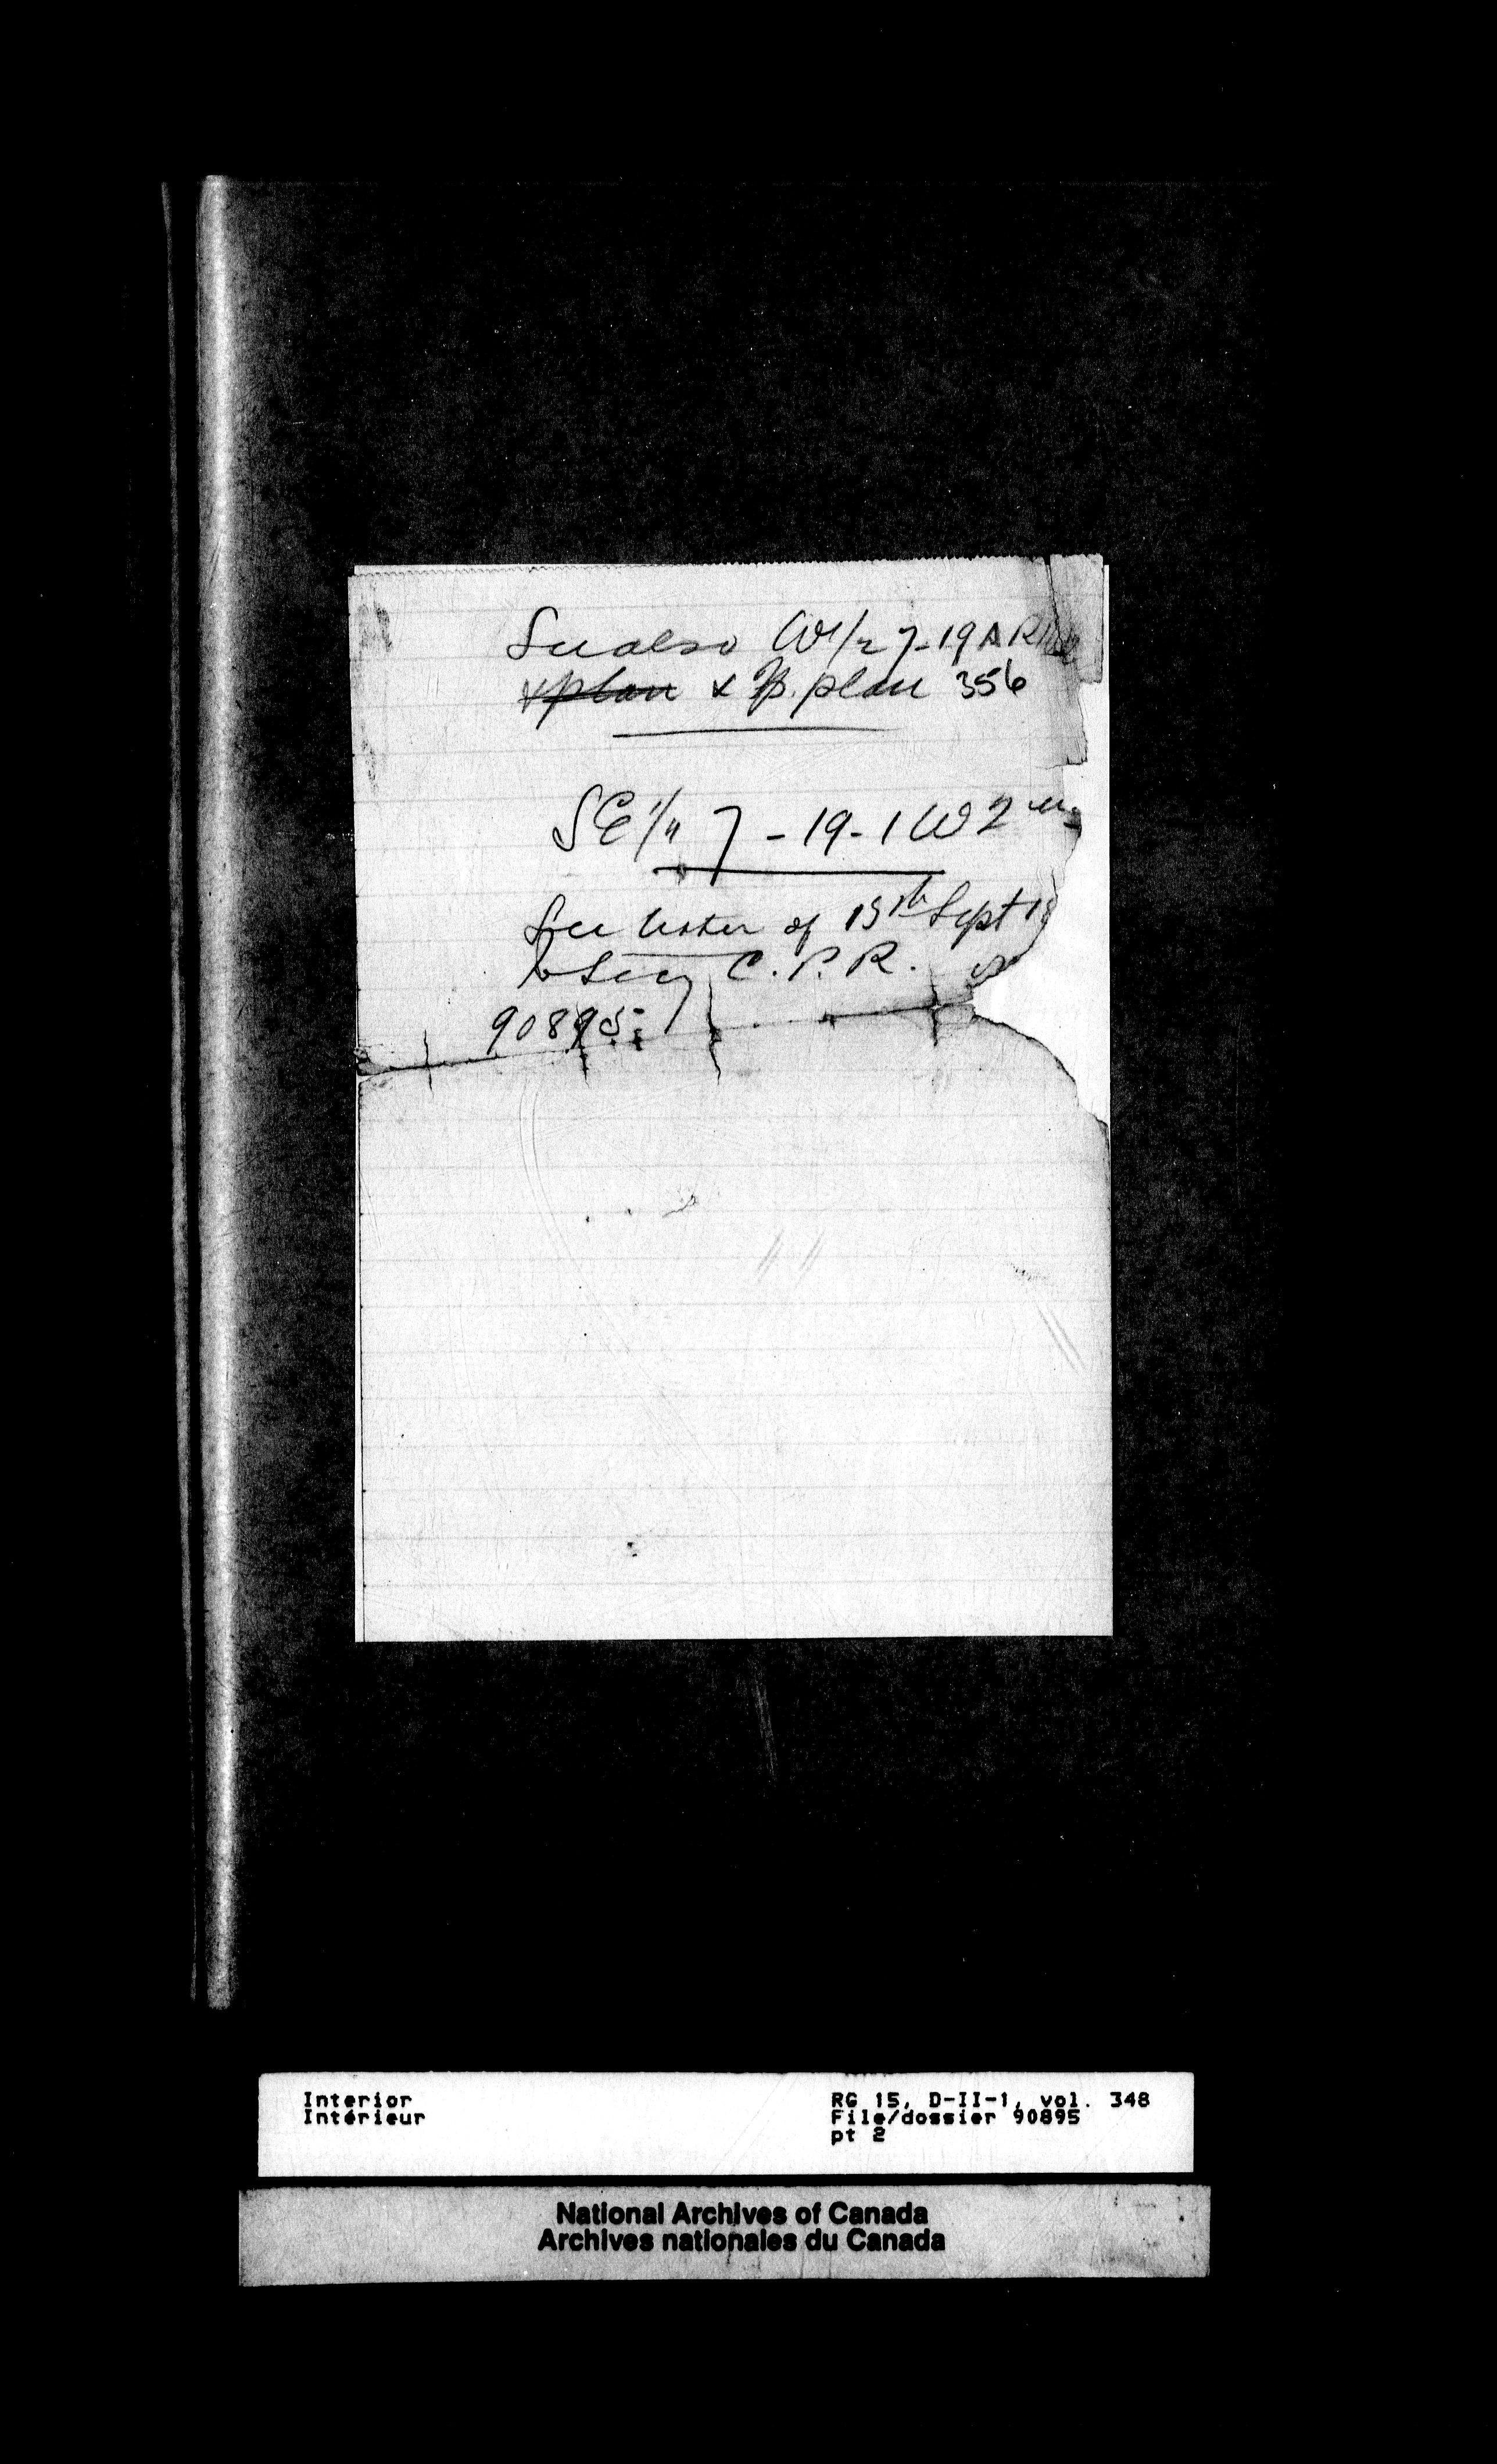 See also W 1/2 7-19 A R
& plan & Tp. plan 356
SE 1/4 7 - 19 - 1 W 2
See letter of 15th Sept
to Secy C.P.R.
90895
Interior
Intérieur
RG 15, D-II-1, vol. 348
File/dossier 90895
pt 2
National Archives of Canada
Archives nationales du Canada